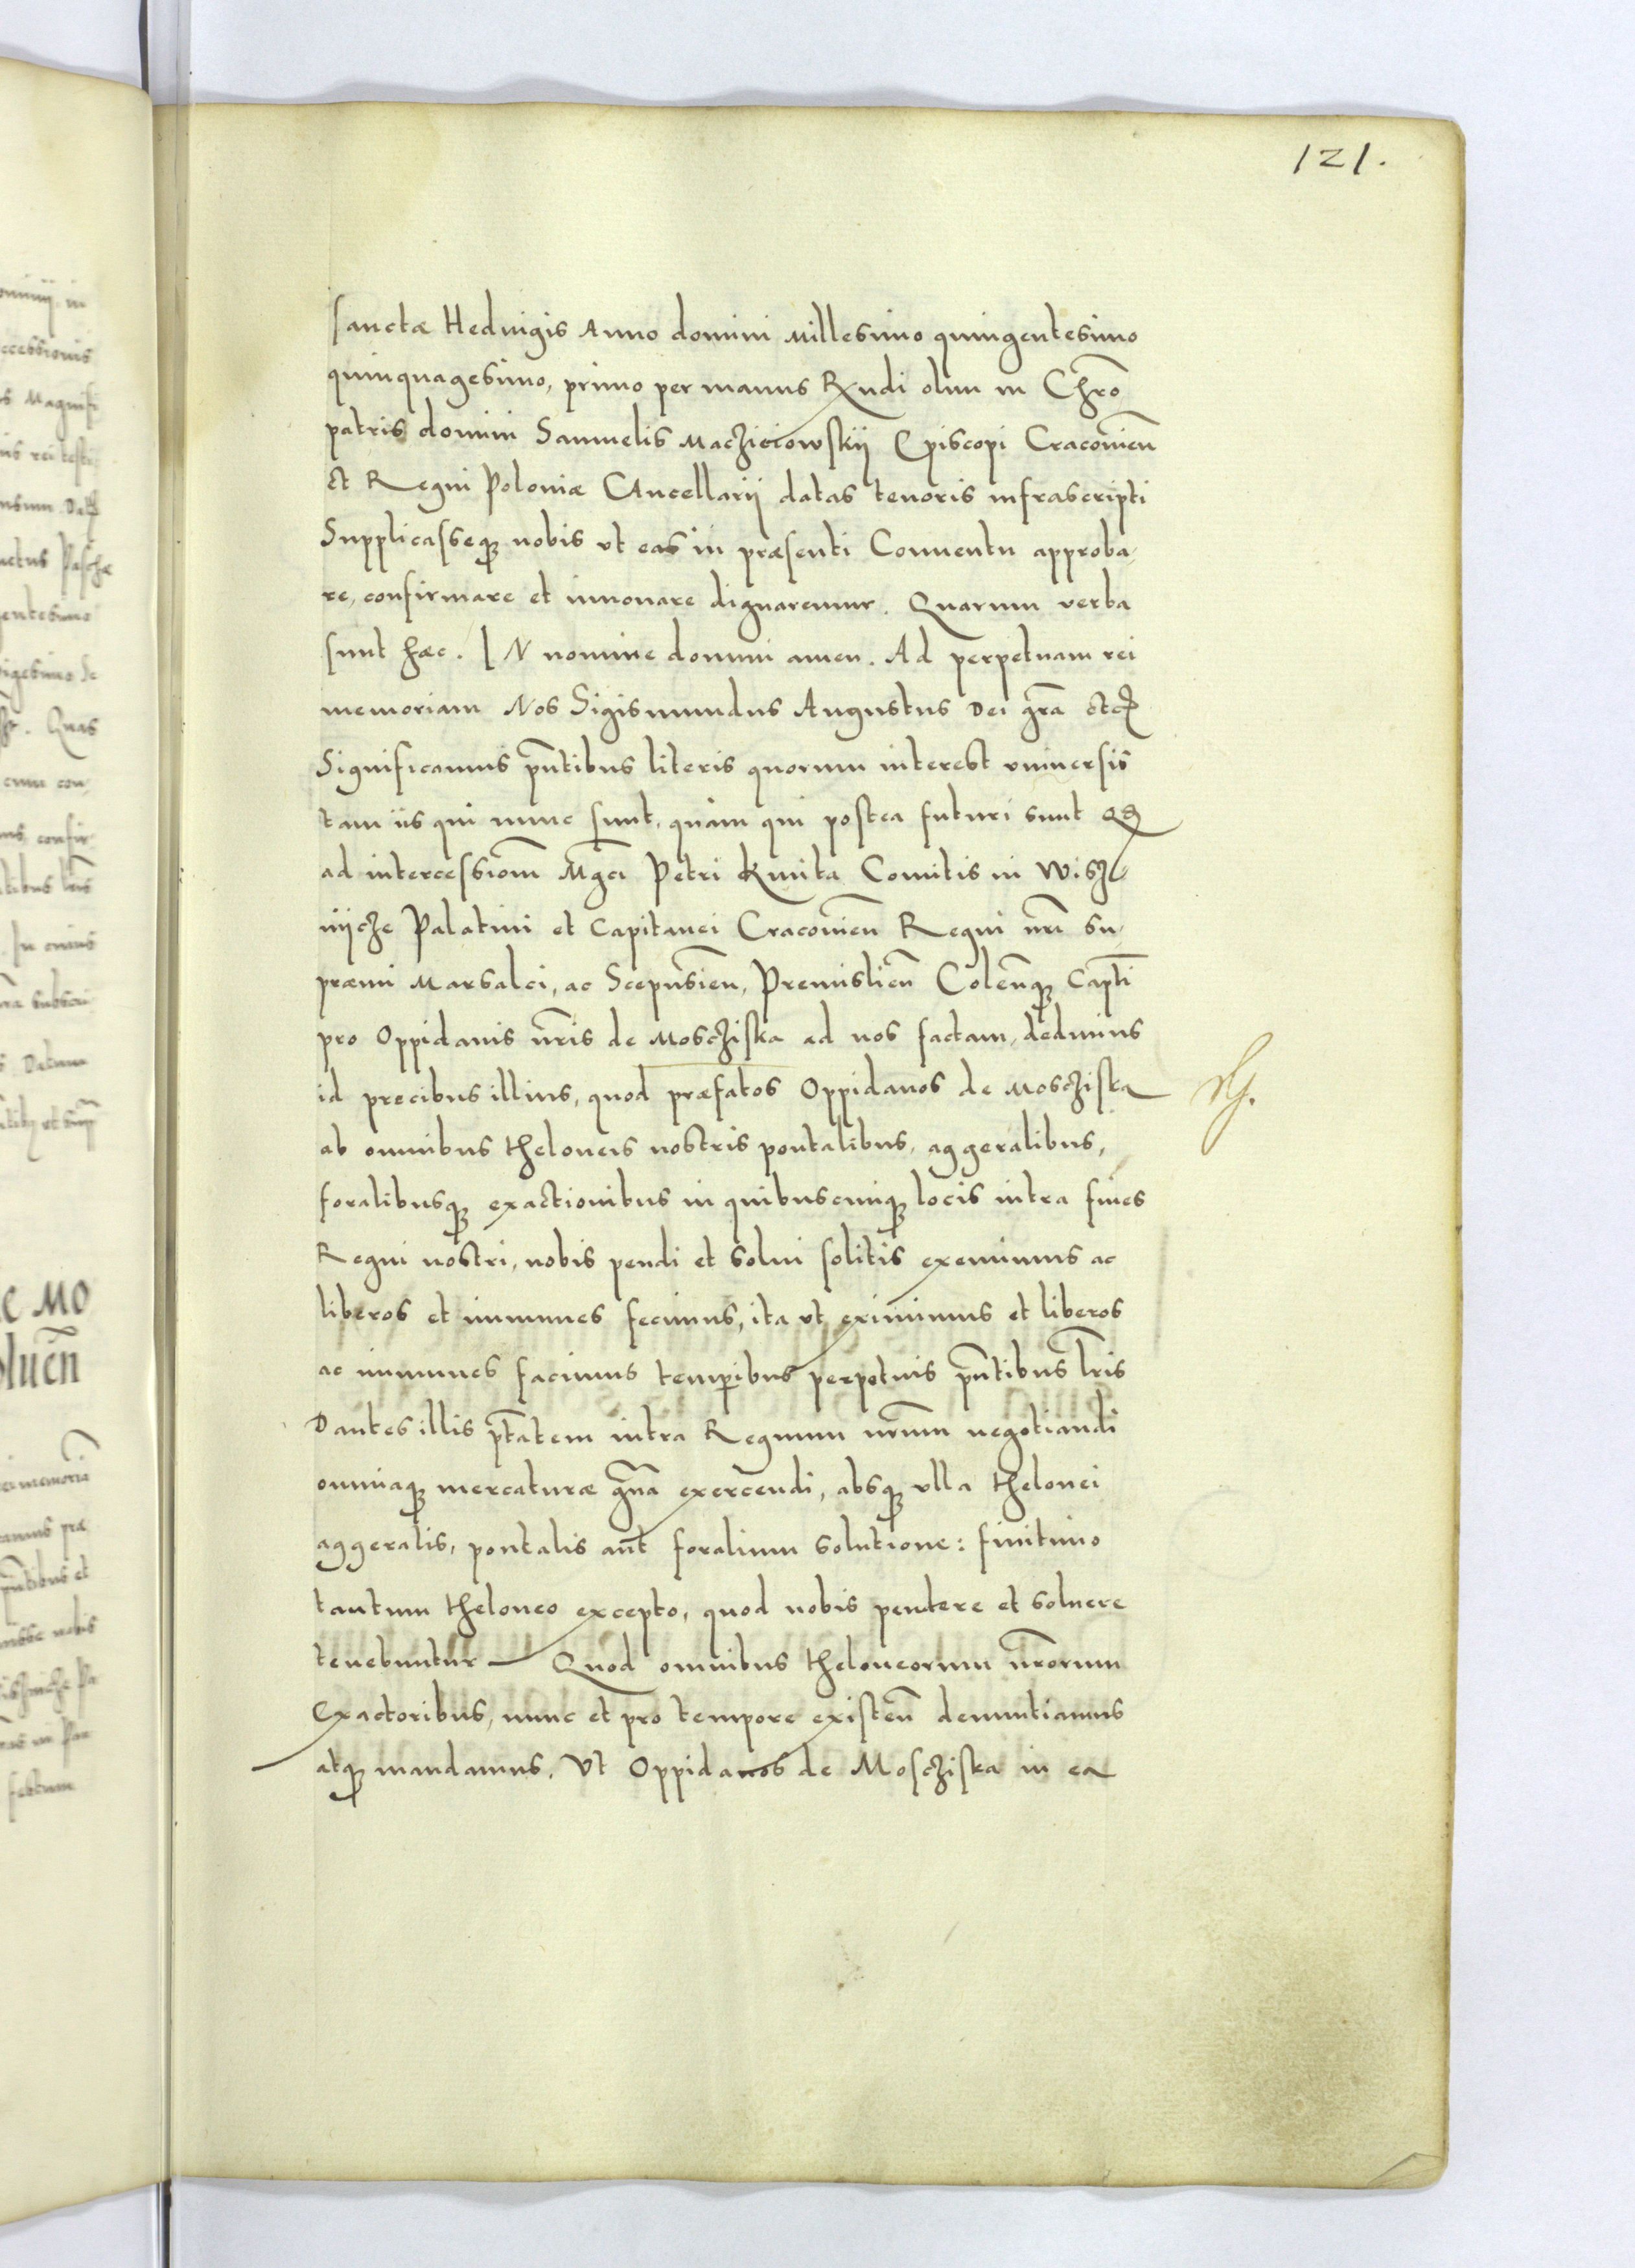 121.
sanctæ Hedvigis Anno domini Millesimo quingentesimo
quinquagesimo, primo per manus Rxndi olim in Chro
patris domini Samuelis Macziciowskij Episcopi Cracovien
et Regni Poloniæ CAncellarij datas tenoris infrascripti
Supplicasseq nobis ut eas in præsenti Conventu approba,
re, confirmare et innovare dignaremur. Quarum verba
sunt hæc. IN nomine domini amen. Ad perpetuam rei
memoriam Nos Sigismundus Augustus Dei gra etc
Significamus pntibus literis quorum interest universis
tam iis qui nunc sunt, quàm qui postea futuri sunt Qd
ad intercessiom Mgci Petri Kmita Comitis in Wisz
nijcze Palatini et Capitanei Cracovien Regni nri su,
præmi Marsalci, ac Scepusien, Premislien Colenq Capti
pro Oppidanis nris de Mosziska ad nos factam, dedimus
id precibus illius, quod præfatos Oppidanos de Mosciska
ab omnibus theloneis nostris pontalibus, aggeralibus,
foralibusq exactionibus in quibuscunq locis intra fines
Regni nostri, nobis pendi et solvi solitis exemimus ac
liberos et immunes fecimus, ita ut eximimus et liberos
ac immunes facimus temporibus perpetuis pntibus lris
Dantes illis ptatem intra Regnum nrum negotiandi
omniaq mercaturæ gna exercendi, absq ulla thelonei
aggeralis, pontalis aut foralium solutione: finitimo
tantum theloneo excepto, quod nobis pendere et solvere
tenebuntur — Quod omnibus theloneorum nrorum
Exactoribus, nunc et pro tempore existen denuntiamus
atq mandamus, Ut Oppidanos de Mosciska in ea